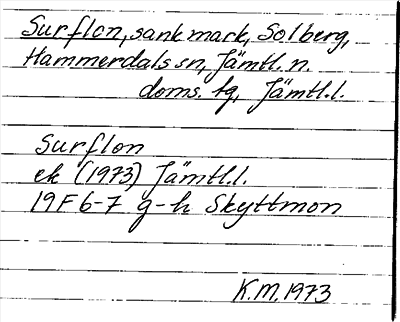 Surflon, sank mark, Solberg,
Hammerdals sn, Jämtl. n.
doms. tg, Jämtl.l.
Surflon
ek (1973) Jämtl.l.
19F 6-7 g-h Skyttmon
K.M. 1973